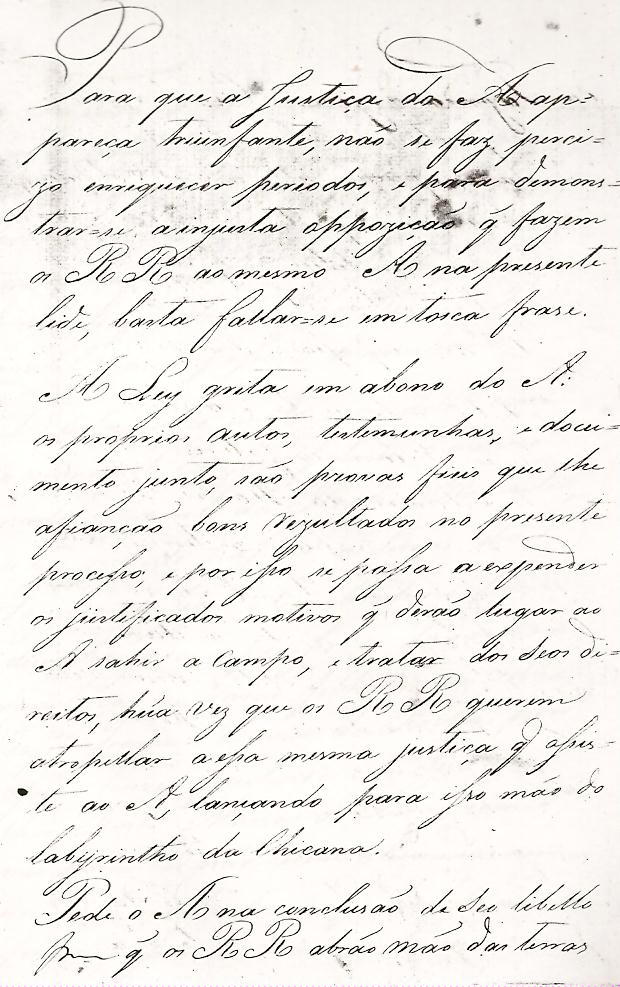 Para que a Justiça do A ap=
pareça triunfante, não se faz perci=
zo enriquecer periodos, e para demons=
trar=se a injusta oppozição q̃ fazem
os RR ao mesmo A na presente
lide, basta fallar=se em tosca frase.
A Ley grita em abono do A:
os proprios autos, testemunhas, e docu=
mento junto, são provas fieis que lhe
afianção bons rezultados no presente
processo, e por isso se passa a expender
os justificados motivos q̃ derão lugar ao
A sahir a Campo, e tratar dos seos di=
reitos, hũa vez que os RR querem
atropellar a essa mesma justiça q̃ assis=
te ao A, lançando para isso mão do
labyrintho da Chicana.
Pede o A na conclusão de seo libello
q̃ os RR abrão mão das terras